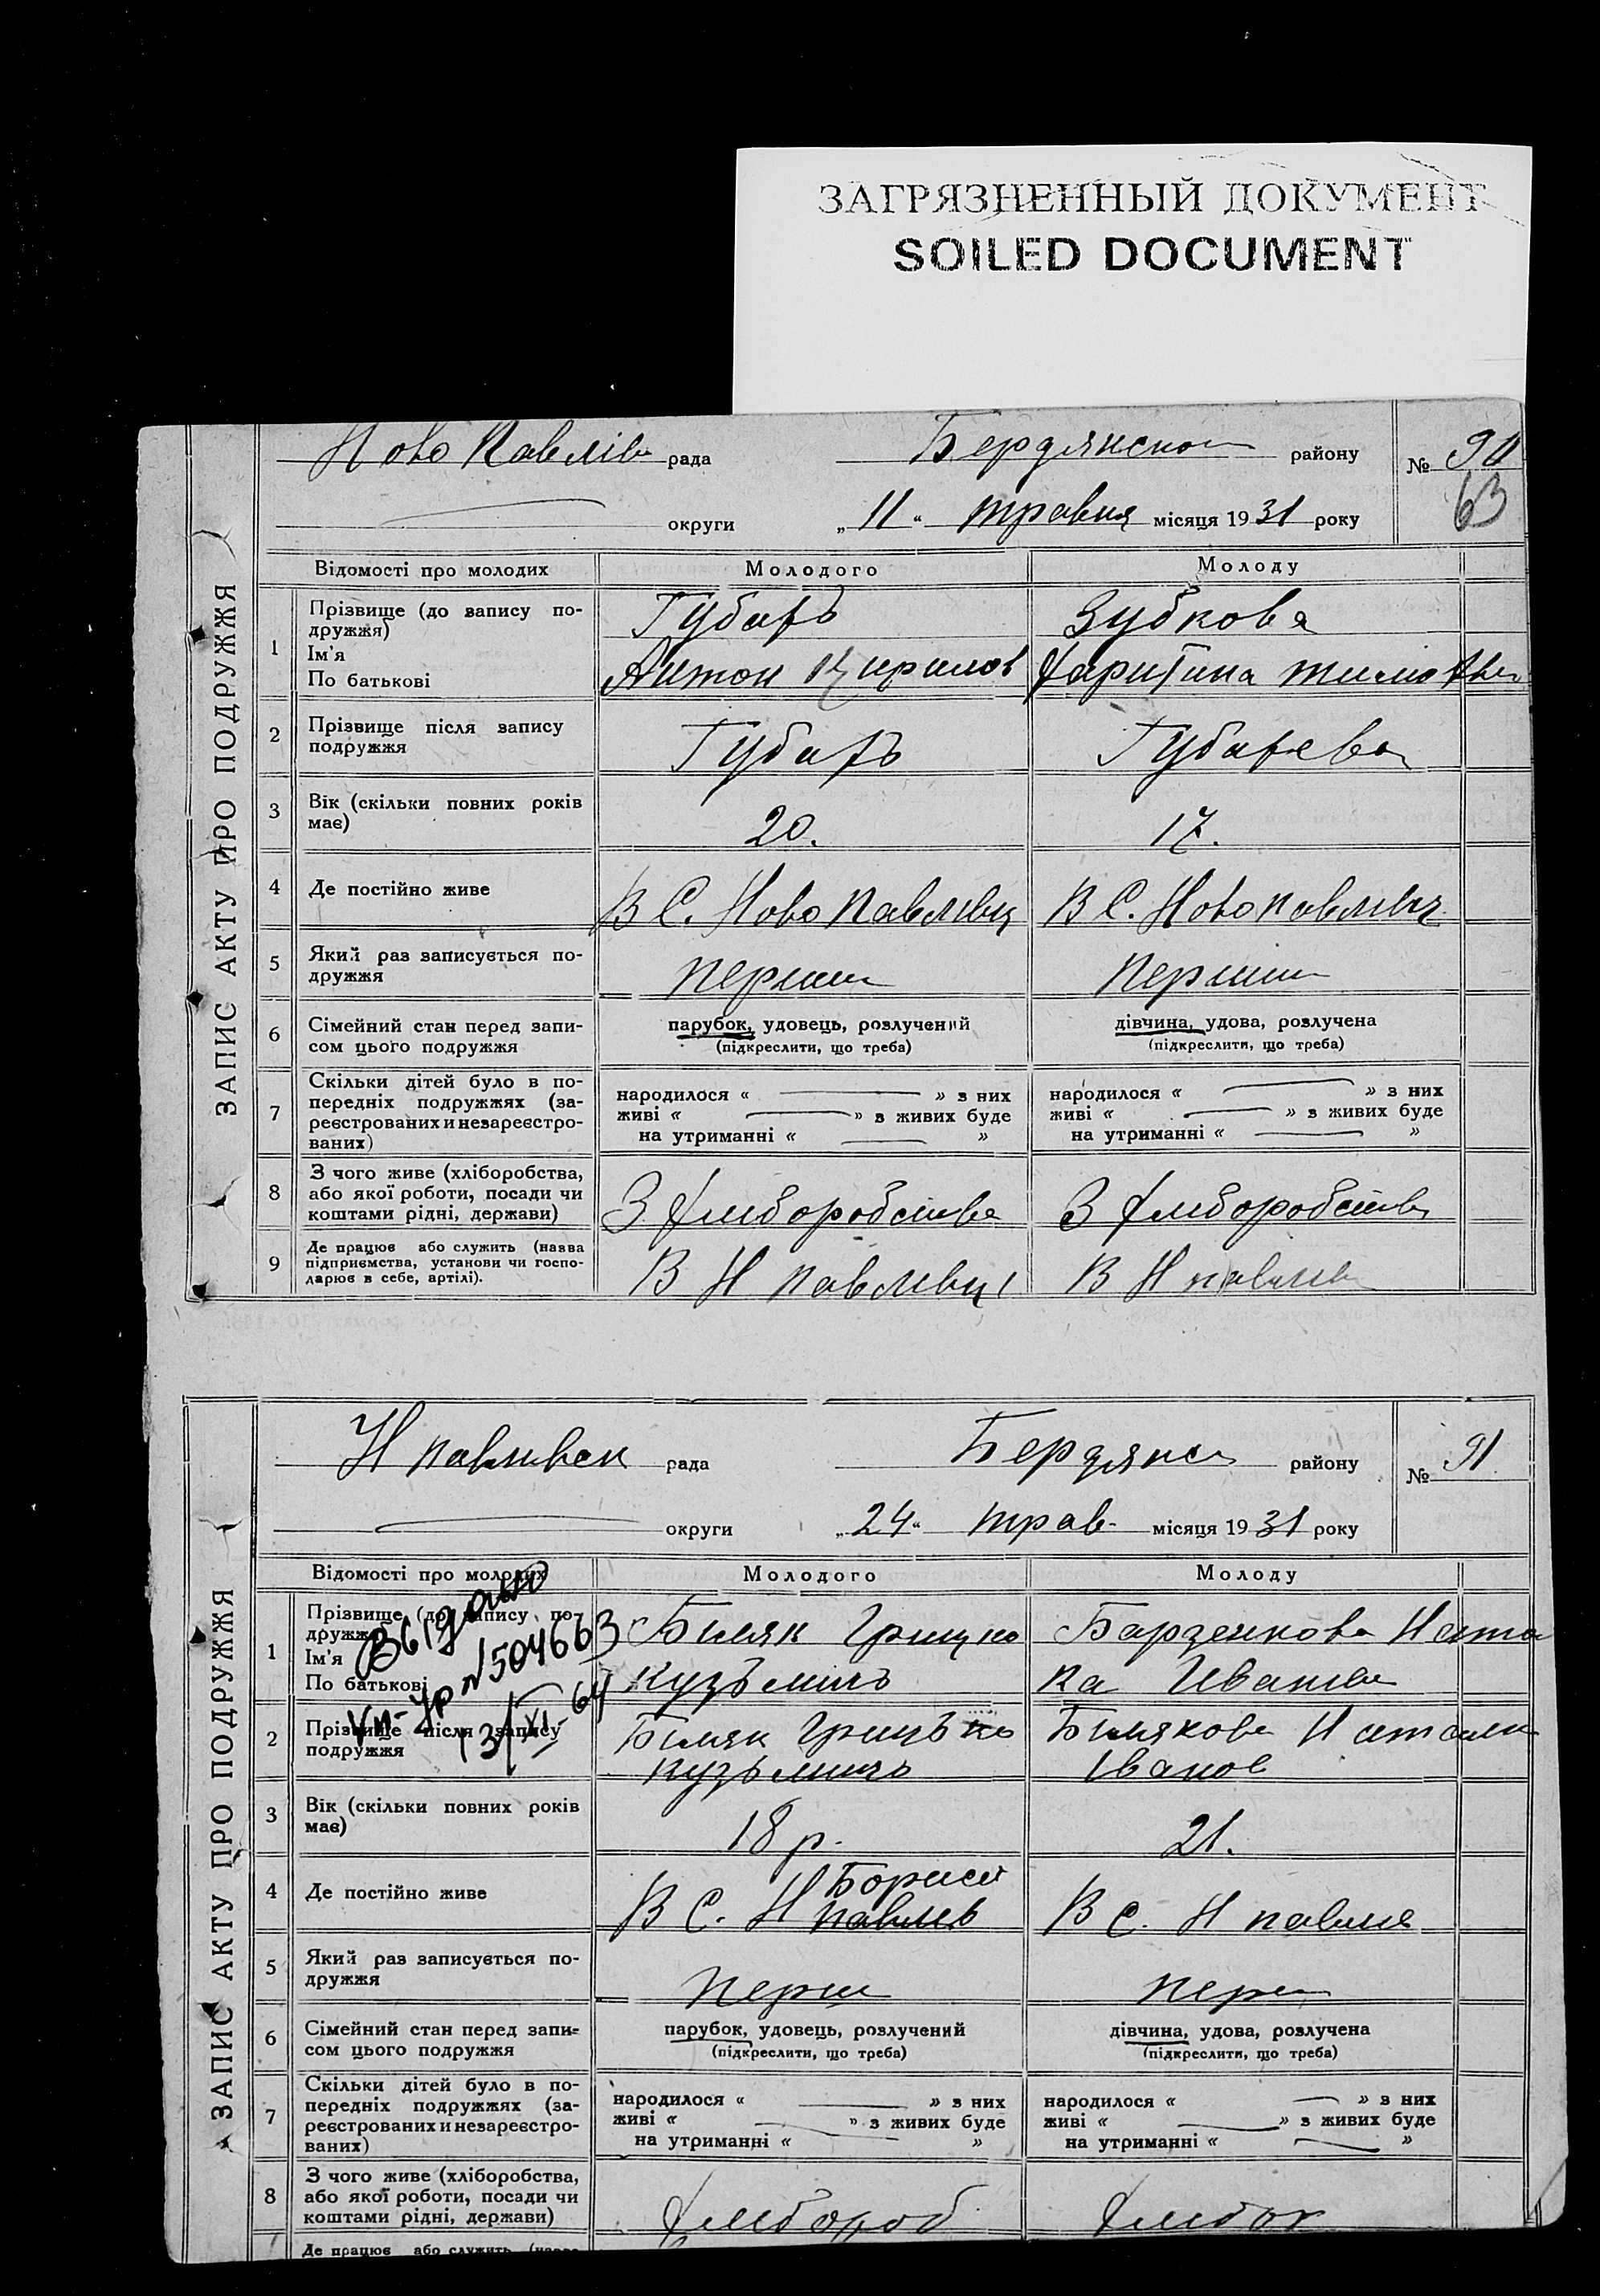 ЗАГРЯЗНЕННЫЙ ДОКУМЕНТ
SOILED DOCUMENT
ЗАПИС АКТУ ПРО ПОДРУЖЖЯ
Ново Павлів рада Бердянсько району № 90
63
округи „ 11 “ травня місяця 1931 року
Відомості про молодих Молодого Молоду
1 Прізвище (до запису по-
дружжя)
Ім'я
По батькові
Губарь Зубкова
Антон Кирилов Харитина Тимофъев
2 Прізвище після запису
подружжя
Губарь Губарева
3 Вік (скільки повних років
має)
20. 17.
4 Де постійно живе В С. Ново Павлівц В С. Ново павлівц
5 Який раз записується по-
дружжя
перши перши
6 Сімейний стан перед запи-
сом цього подружжя
парубок, удовець, розлучений дівчина, удова, розлучена
(підкреслити, що треба) (підкреслити, що треба)
7 Скільки дітей було в по-
передніх подружжях (за-
реєстрованих и незареєстро-
ваних)
народилося « » з них народилося « » з них
живі « » з живих буде живі « » з живих буде
на утриманні « » на утриманні « »
8 З чого живе (хліборобства,
або якої роботи, посади чи
коштами рідні, держави)
З хліборобства З хліборобств
9 Де працює або служить (назва
підприємства, установи чи госпо-
дарює в себе, артілі).
В Н павлівці В Н павлів
ЗАПИС АКТУ ПРО ПОДРУЖЖЯ
Н павливск рада Бердянс району № 91
округи „ 24 “ трав- місяця 1931 року
Відомості про молодих Молодого Молоду
Выдано
№504663
13/XI-64
1 Прізвище (до запису по-
дружжя)
Ім'я
По батькові
Биляк Грицко Барзенкова Ната
Кузьмичь ка Иванов
2 Прізвище після запису
подружжя
Биляк Грицько Билякова Натали
Кузьмичь Іванов
3 Вік (скільки повних років
має)
18 р. 21.
4 Де постійно живе
Борисо
В С. Н павлів В с. Н павлів
5 Який раз записується по-
дружжя
перш перш
6 Сімейний стан перед запи-
сом цього подружжя
парубок, удовець, розлучений дівчина, удова, розлучена
(підкреслити, що треба) (підкреслити, що треба)
7 Скільки дітей було в по-
передніх подружжях (за-
реєстрованих и незареєстро-
ваних)
народилося « » з них народилося « » з них
живі « » з живих буде живі « » з живих буде
на утриманні « » на утриманні « »
8 З чого живе (хліборобства,
або якої роботи, посади чи
коштами рідні, держави)
хлібороб хлібор
Де працює або служить (назва